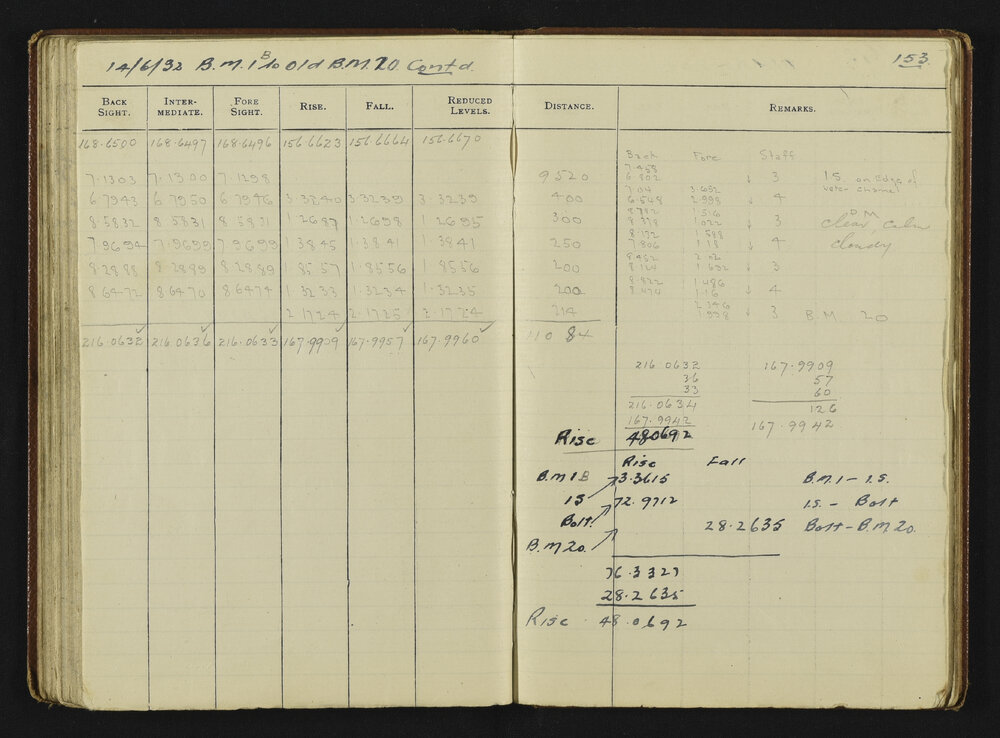 14/6/32 B.M.1B to Old B.M.20 Contd.
153
BACK SIGHT. INTER-MEDIATE. FORE SIGHT. RISE. FALL. REDUCED LEVELS. DISTANCE. REMARKS.
168.6500 168.6497 168.6496 156.6623 156.6664 156.6670
Back Fore Staff
7.458
7.1303 7.1300 7.1298 9520 6.802 ↓ 3 I.S. on Edge of
water channel
7.04 3.652
6.7943 6.7950 6.7946 3.3240 3.3239 3.3239 400 6.548 2.998 ↓ 4
8.782 1.516
8.5832 8.5831 8.5831 1.2687 1.2698 1.2695 300 8.378 1.022 ↓ 3 clear, calm
P M
8.132 1.588
7.9694 7.9699 7.9699 1.3845 1.3841 1.3841 250 7.806 1.18 ↓ 4 cloudy
8.452 2.02
8.2888 8.2889 8.2889 1.8557 1.8556 1.8556 200 8.124 1.692 ↓ 3
8.822 1.486
8.6472 8.6470 8.6474 1.3233 1.3234 1.3235 200 8.474 1.16 ↓ 4
2.346
2.1724 2.1725 2.1724 214 1.998 ↓ 3 B.M. 20
216.0632 216.0636 216.0633 167.9909 167.9957 167.9960 110 84
216.0632 167.9909
36 57
33 60
216.0634 126
167.9942 167.9942
Rise 48.0692
Rise Fall
B.M 1B 3.3615 B.M.1 - I.S.
IS 72.9712 I.S. - Bolt
Bolt 28.2635 Bolt - B.M.20.
B.M 20.
76.3327
28.2635
Rise 48.0692